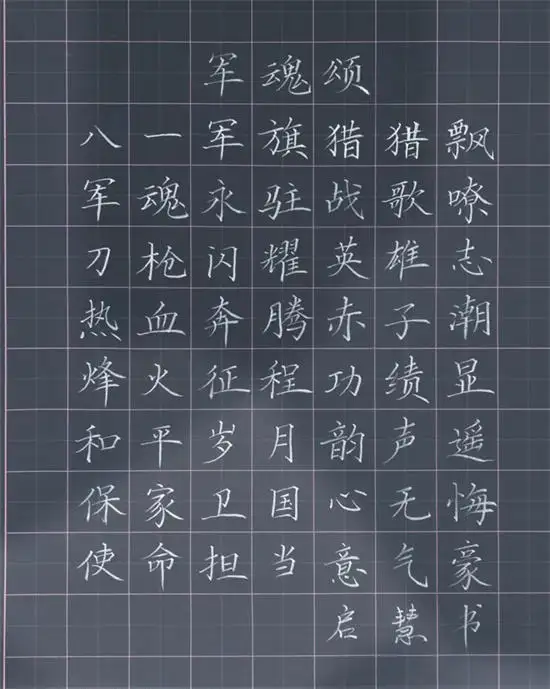 军魂颂
八一军旗猎猎飘
军魂永驻战歌嘹
刀枪闪耀英雄志
热血奔腾赤子潮
烽火征程功绩显
和平岁月韵声遥
保家卫国心无悔
使命担当意气豪
启慧书